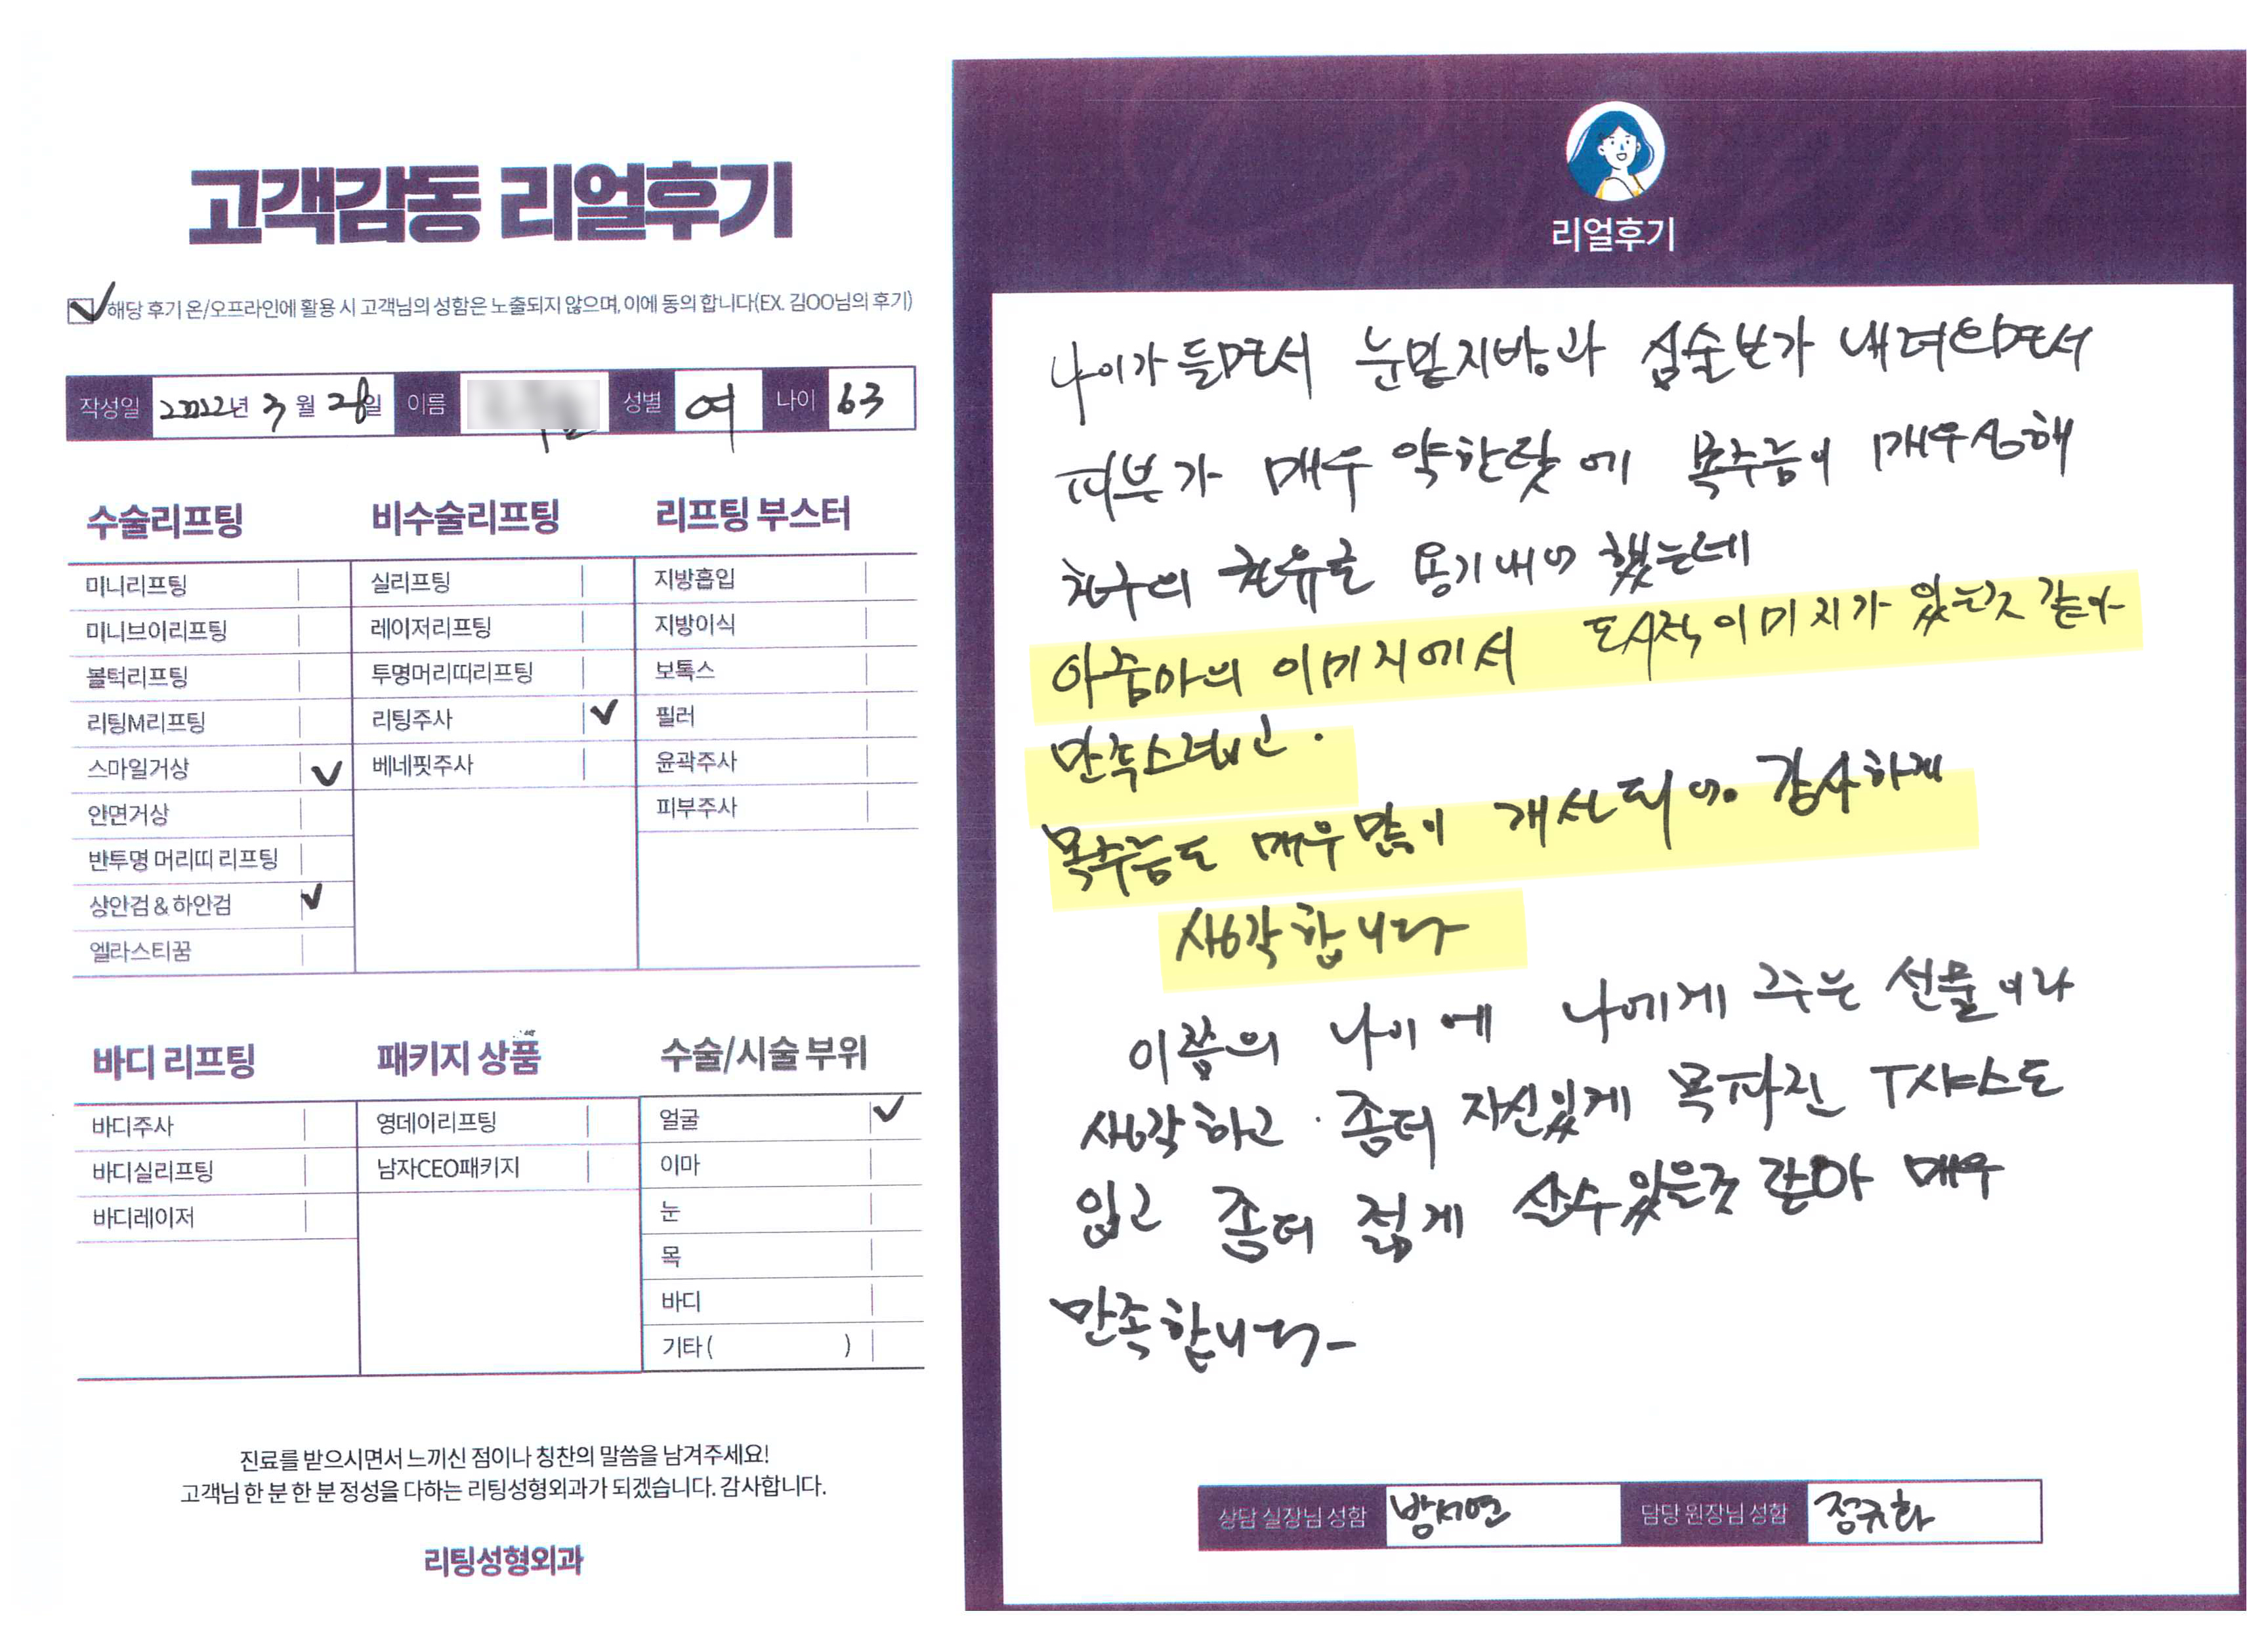 고객감동 리얼후기
해당 후기 온/오프라인에 활용 시 고객님의 성함은 노출되지 않으며, 이에 동의 합니다(EX. 김OO님의 후기)
작성일 2022년 3월 28일 이름 성별 여 나이 63
수술리프팅
미니리프팅
미니브이리프팅
볼턱리프팅
리팅M리프팅
스마일거상
안면거상
반투명 머리띠 리프팅
상안검 & 하안검
엘라스티꿈
비수술리프팅
실리프팅
레이저리프팅
투명머리띠리프팅
리팅주사
베네핏주사
리프팅 부스터
지방흡입
지방이식
보톡스
필러
윤곽주사
피부주사
바디 리프팅
바디주사
바디실리프팅
바디레이저
패키지 상품
영데이리프팅
남자CEO패키지
수술/시술 부위
얼굴
이마
눈
목
바디
기타 ( )
진료를 받으시면서 느끼신 점이나 칭찬의 말씀을 남겨주세요!
고객님 한 분 한 분 정성을 다하는 리팅성형외과가 되겠습니다. 감사합니다.
리팅성형외과
리얼후기
나이가 들면서 눈밑지방과 심술보가 내려오면서
피부가 매우 약한탓에 목주름이 매우심해
친구의 권유로 용기내어 했는데
아줌마의 이미지에서 도시적이미지가 있는것 같아
만족스럽고.
목주름도 매우많이 개선되어 감사하게
생각합니다
이쯤의 나이에 나에게 주는 선물이라
생각하고. 좀더 자신있게 목파진 T샤스도
입고 좀더 젊게 살수있을것 같아 매우
만족합니다-
상담 실장님 성함 방서연 담당 원장님 성함 정규화